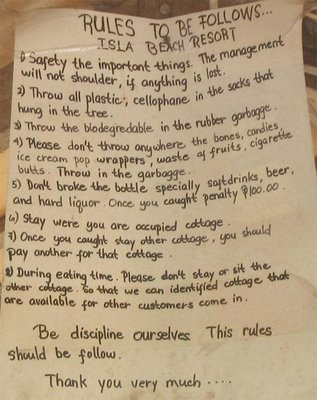 RULES TO BE FOLLOWS...
ISLA BEACH RESORT
1) Safety the important things. The management
will not shoulder, if anything is lost.
2) Throw all plastic, cellophane in the sacks that
hung in the tree.
3) Throw the biodegredable in the rubber garbagge.
4) Please don't throw anywhere the bones, candies,
ice cream pop wrappers, waste of fruits, cigarette
butts. Throw in the garbagge.
5) Don't broke the bottle specially saftdrinks, beer,
and hard liquor. Once you caught penalty ₱100.00.
6) Stay were you are occupied cottage.
7) Once you caught stay other cottage, you should
pay another for that cottage.
8) During eating time. Please don't stay or sit the
other cottage. So that we can identified cottage that
are available for other customers come in.
Be discipline ourselves. This rules
should be follow.
Thank you very much ....